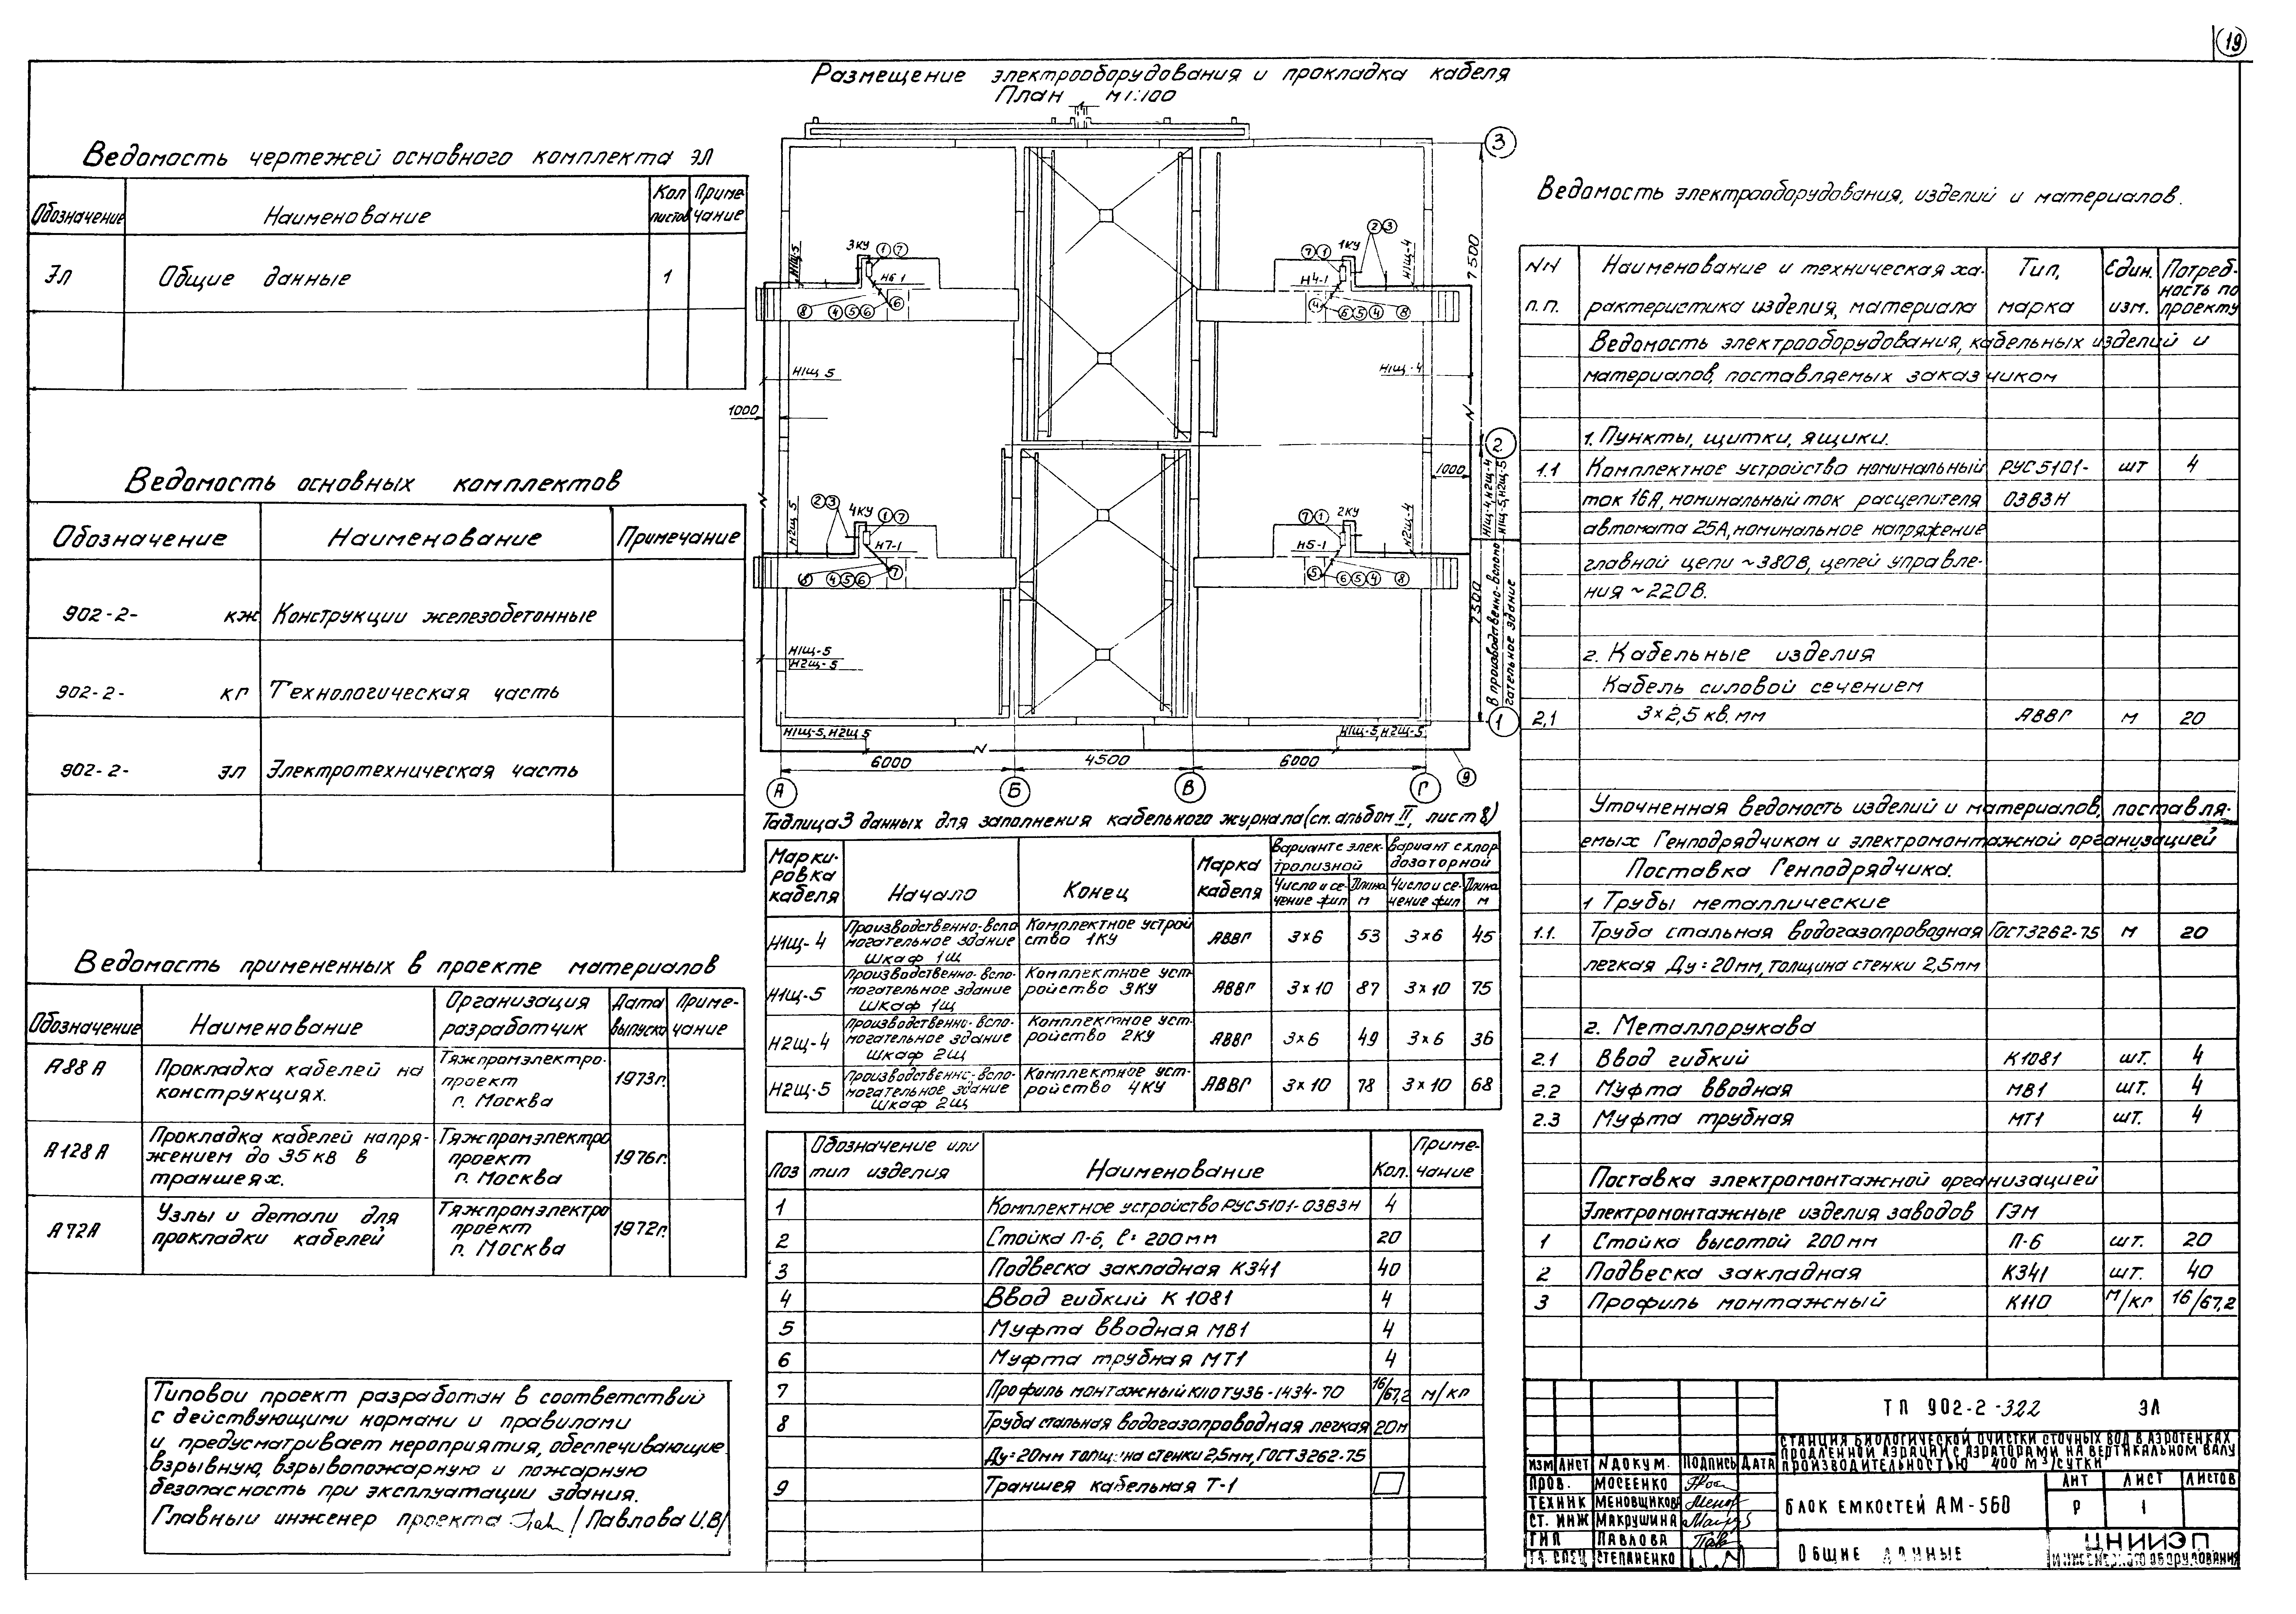 19
Размещение электрооборудования и прокладка кабеля
План М 1:100
Ведомость чертежей основного комплекта ЭЛ
Обозначение Наименование Кол листов Примечание
ЭЛ Общие данные 1
Ведомость основных комплектов
Обозначение Наименование Примечание
902-2- КЖ Конструкции железобетонные
902-2- КГ Технологическая часть
902-2- ЭЛ Электротехническая часть
Ведомость примененных в проекте материалов
Обозначение Наименование Организация разработчик Дата выпуска Примечание
А88А Прокладка кабелей на конструкциях. Тяжпромэлектропроект г. Москва 1973г.
А128А Прокладка кабелей напряжением до 35кв в траншеях. Тяжпромэлектропроект г. Москва 1976г.
А72А Узлы и детали для прокладки кабелей Тяжпромэлектропроект г. Москва 1972г.
Типовой проект разработан в соответствий
с действующими нормами и правилами
и предусматривает мероприятия, обеспечивающие
взрывную, взрывопожарную и пожарную
безопасность при эксплуатации здания.
Главный инженер проекта /Павлова И.В/
3КУ 1 7 Н6-1 Н1Щ-5
8 4 5 6 6
7 1 1КУ 2 3 Н4-1 Н1Щ-4
4 6 5 4 8
Н1Щ 5 Н1Щ-4
1000 1000
2 3 4КУ 1 7 Н7-1 Н2Щ 5
8 4 5 6 7
7 1 2КУ Н5-1 Н2Щ-4
5 6 5 4 8
Н1Щ-5
Н2Щ-5
Н1Щ-5, Н2Щ 5 Н1Щ-5, Н2Щ-5
Н1Щ-4, Н2Щ-4
Н1Щ-5, Н2Щ-5
В производственно-вспомогательное здание
7500 7500
3 2 1
6000 4500 6000
А Б В Г 9
Таблица 3 данных для заполнения кабельного журнала (см. альбом II, лист 8)
Маркировка кабеля Начало Конец Марка кабеля Вариант с электролизной Вариант с хлордозаторной
Число и сечение жил Длина м Число и сечение жил Длина м
Н1Щ-4 Производственно-вспомогательное здание шкаф 1Щ Комплектное устройство 1КУ АВВГ 3×6 53 3×6 45
Н1Щ-5 Производственно-вспомогательное здание шкаф 1Щ Комплектное устройство 3КУ АВВГ 3×10 87 3×10 75
Н2Щ-4 Производственно-вспомогательное здание шкаф 2Щ Комплектное устройство 2КУ АВВГ 3×6 49 3×6 36
Н2Щ-5 Производственно-вспомогательное здание шкаф 2Щ Комплектное устройство 4КУ АВВГ 3×10 78 3×10 68
Поз Обозначение или тип изделия Наименование Кол. Примечание
1 Комплектное устройство РУС5101-03В3Н 4
2 Стойка П-6, ℓ= 200мм 20
3 Подвеска закладная К341 40
4 Ввод гибкий К 1081 4
5 Муфта вводная МВ1 4
6 Муфта трубная МТ1 4
7 Профиль монтажный К110 ТУ36-1434-70 16/67,2 м/кг
8 Труба стальная водогазопроводная легкая 20м
Ду=20мм толщина стенки 2,5мм, ГОСТ3262-75
9 Траншея кабельная Т-1
Ведомость электрооборудования, изделий и материалов.
NN п.п. Наименование и техническая характеристика изделия, материала Тип, марка Един. изм. Потребность по проекту
Ведомость электрооборудования, кабельных изделий и
материалов, поставляемых заказчиком
1. Пункты, щитки, ящики.
1.1 Комплектное устройство номинальный РУС5101- шт 4
ток 16А, номинальный ток расцепителя 03В3Н
автомата 25А, номинальное напряжение
главной цепи ~380в, цепей управле-
ния ~220в.
2. Кабельные изделия
Кабель силовой сечением
2,1 3×2,5 кв. мм АВВГ м 20
Уточненная ведомость изделий и материалов, поставля-
емых Генподрядчиком и электромонтажной организацией
Поставка Генподрядчика.
1 Трубы металлические
1.1. Труба стальная водогазопроводная ГОСТ3262-75 м 20
легкая Ду=20мм, толщина стенки 2,5мм
2. Металлорукава
2.1 Ввод гибкий К1081 шт. 4
2.2 Муфта вводная МВ1 шт. 4
2.3 Муфта трубная МТ1 шт. 4
Поставка электромонтажной организацией
Электромонтажные изделия заводов ГЭМ
1 Стойка высотой 200мм П-6 шт. 20
2 Подвеска закладная К341 шт. 40
3 Профиль монтажный К110 м/кг 16/67,2
ТП 902-2-322 ЭЛ
СТАНЦИЯ БИОЛОГИЧЕСКОЙ ОЧИСТКИ СТОЧНЫХ ВОД В АЭРОТЕНКАХ
ПРОДЛЕННОЙ АЭРАЦИИ С АЭРАТОРАМИ НА ВЕРТИКАЛЬНОМ ВАЛУ
ПРОИЗВОДИТЕЛЬНОСТЬЮ 400 М³/СУТКИ
ИЗМ ЛИСТ N ДОКУМ. ПОДПИСЬ ДАТА
ПРОВ. МОСЕЕНКО
ТЕХНИК МЕНОВЩИКОВА
СТ. ИНЖ МАКРУШИНА
ГИП ПАВЛОВА
ГЛ. СПЕЦ СТЕПАНЕНКО
БЛОК ЕМКОСТЕЙ АМ-560
ЛИТ ЛИСТ ЛИСТОВ
Р 1
ОБЩИЕ ДАННЫЕ
ЦНИИЭП
ИНЖЕНЕРНОГО ОБОРУДОВАНИЯ